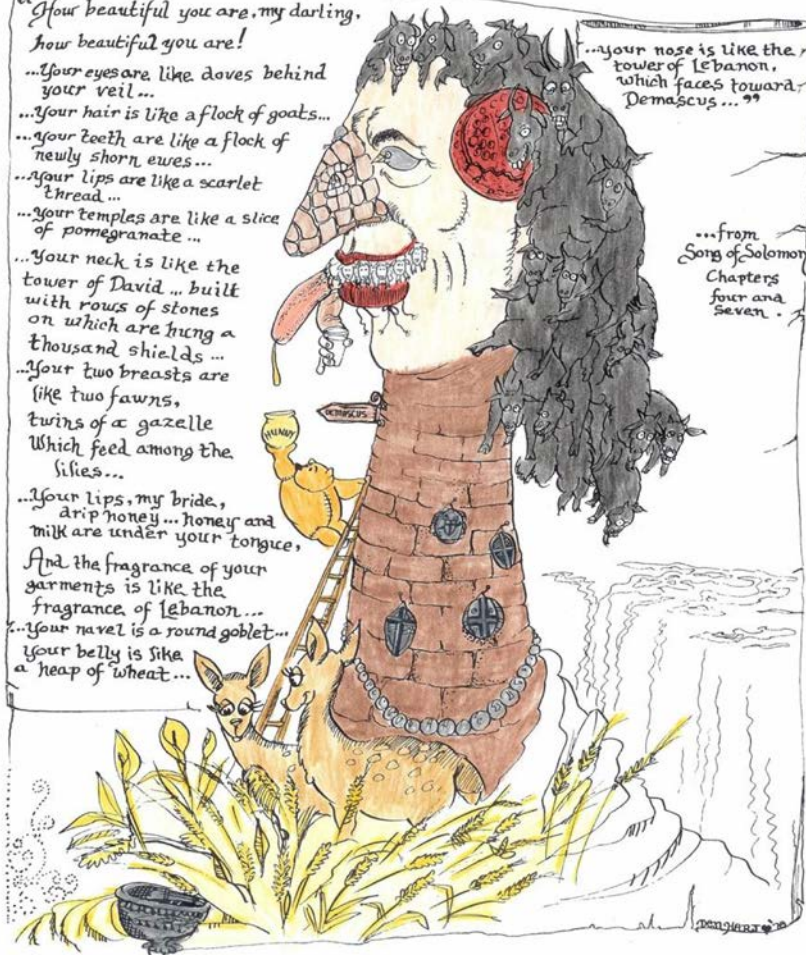 "How beautiful you are, my darling,
how beautiful you are!
...Your eyes are like doves behind
your veil...
...Your hair is like a flock of goats...
...Your teeth are like a flock of
newly shorn ewes...
...Your lips are like a scarlet
thread...
...Your temples are like a slice
of pomegranate...
...Your neck is like the
tower of David... built
with rows of stones
on which are hung a
thousand shields...
...Your two breasts are
like two fawns,
twins of a gazelle
Which feed among the
lilies...
...Your lips, my bride,
drip honey... honey and
milk are under your tongue,
And the fragrance of your
garments is like the
fragrance of Lebanon...
...Your navel is a round goblet...
your belly is like
a heap of wheat...
...your nose is like the
tower of Lebanon,
which faces toward
Demascus..."
...from
Song of Solomon
Chapters
four and
seven.
DEMASCUS
HUNNY
DEN HART